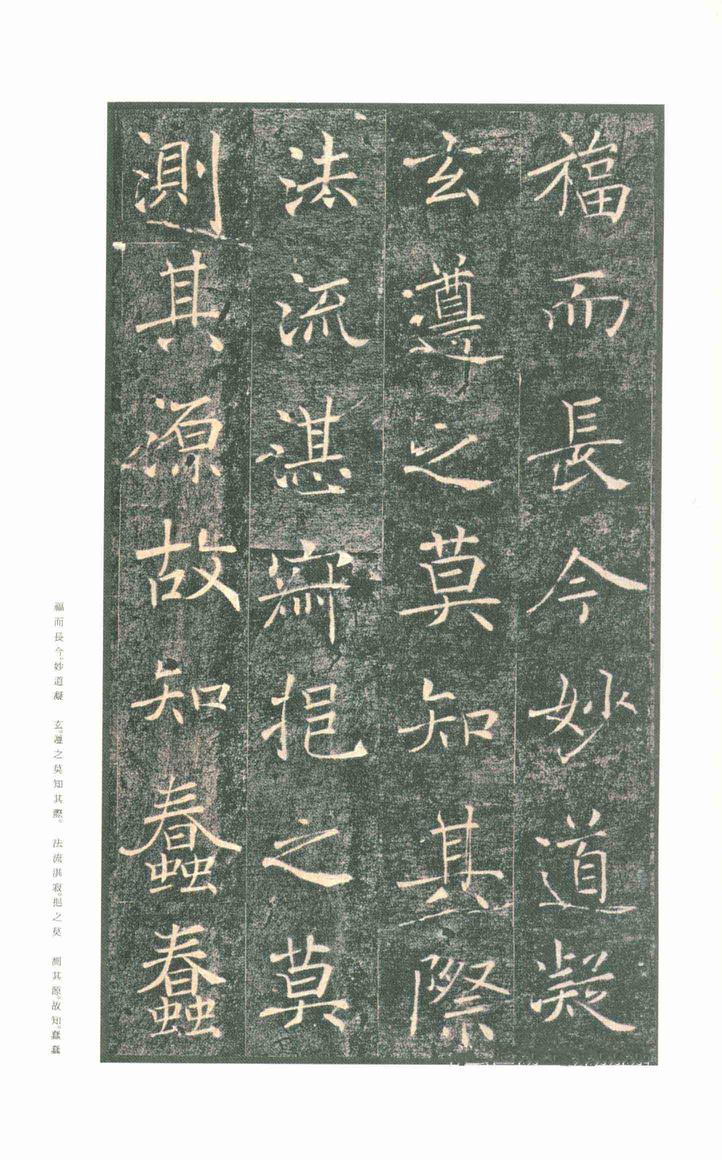 福而長今妙道凝
玄遵之莫知其際
法流湛寂挹之莫
測其源故知蠢蠢
福而長今。妙道凝 玄。遵之莫知其際。 法流湛寂。挹之莫 測其源。故知。蠢蠢